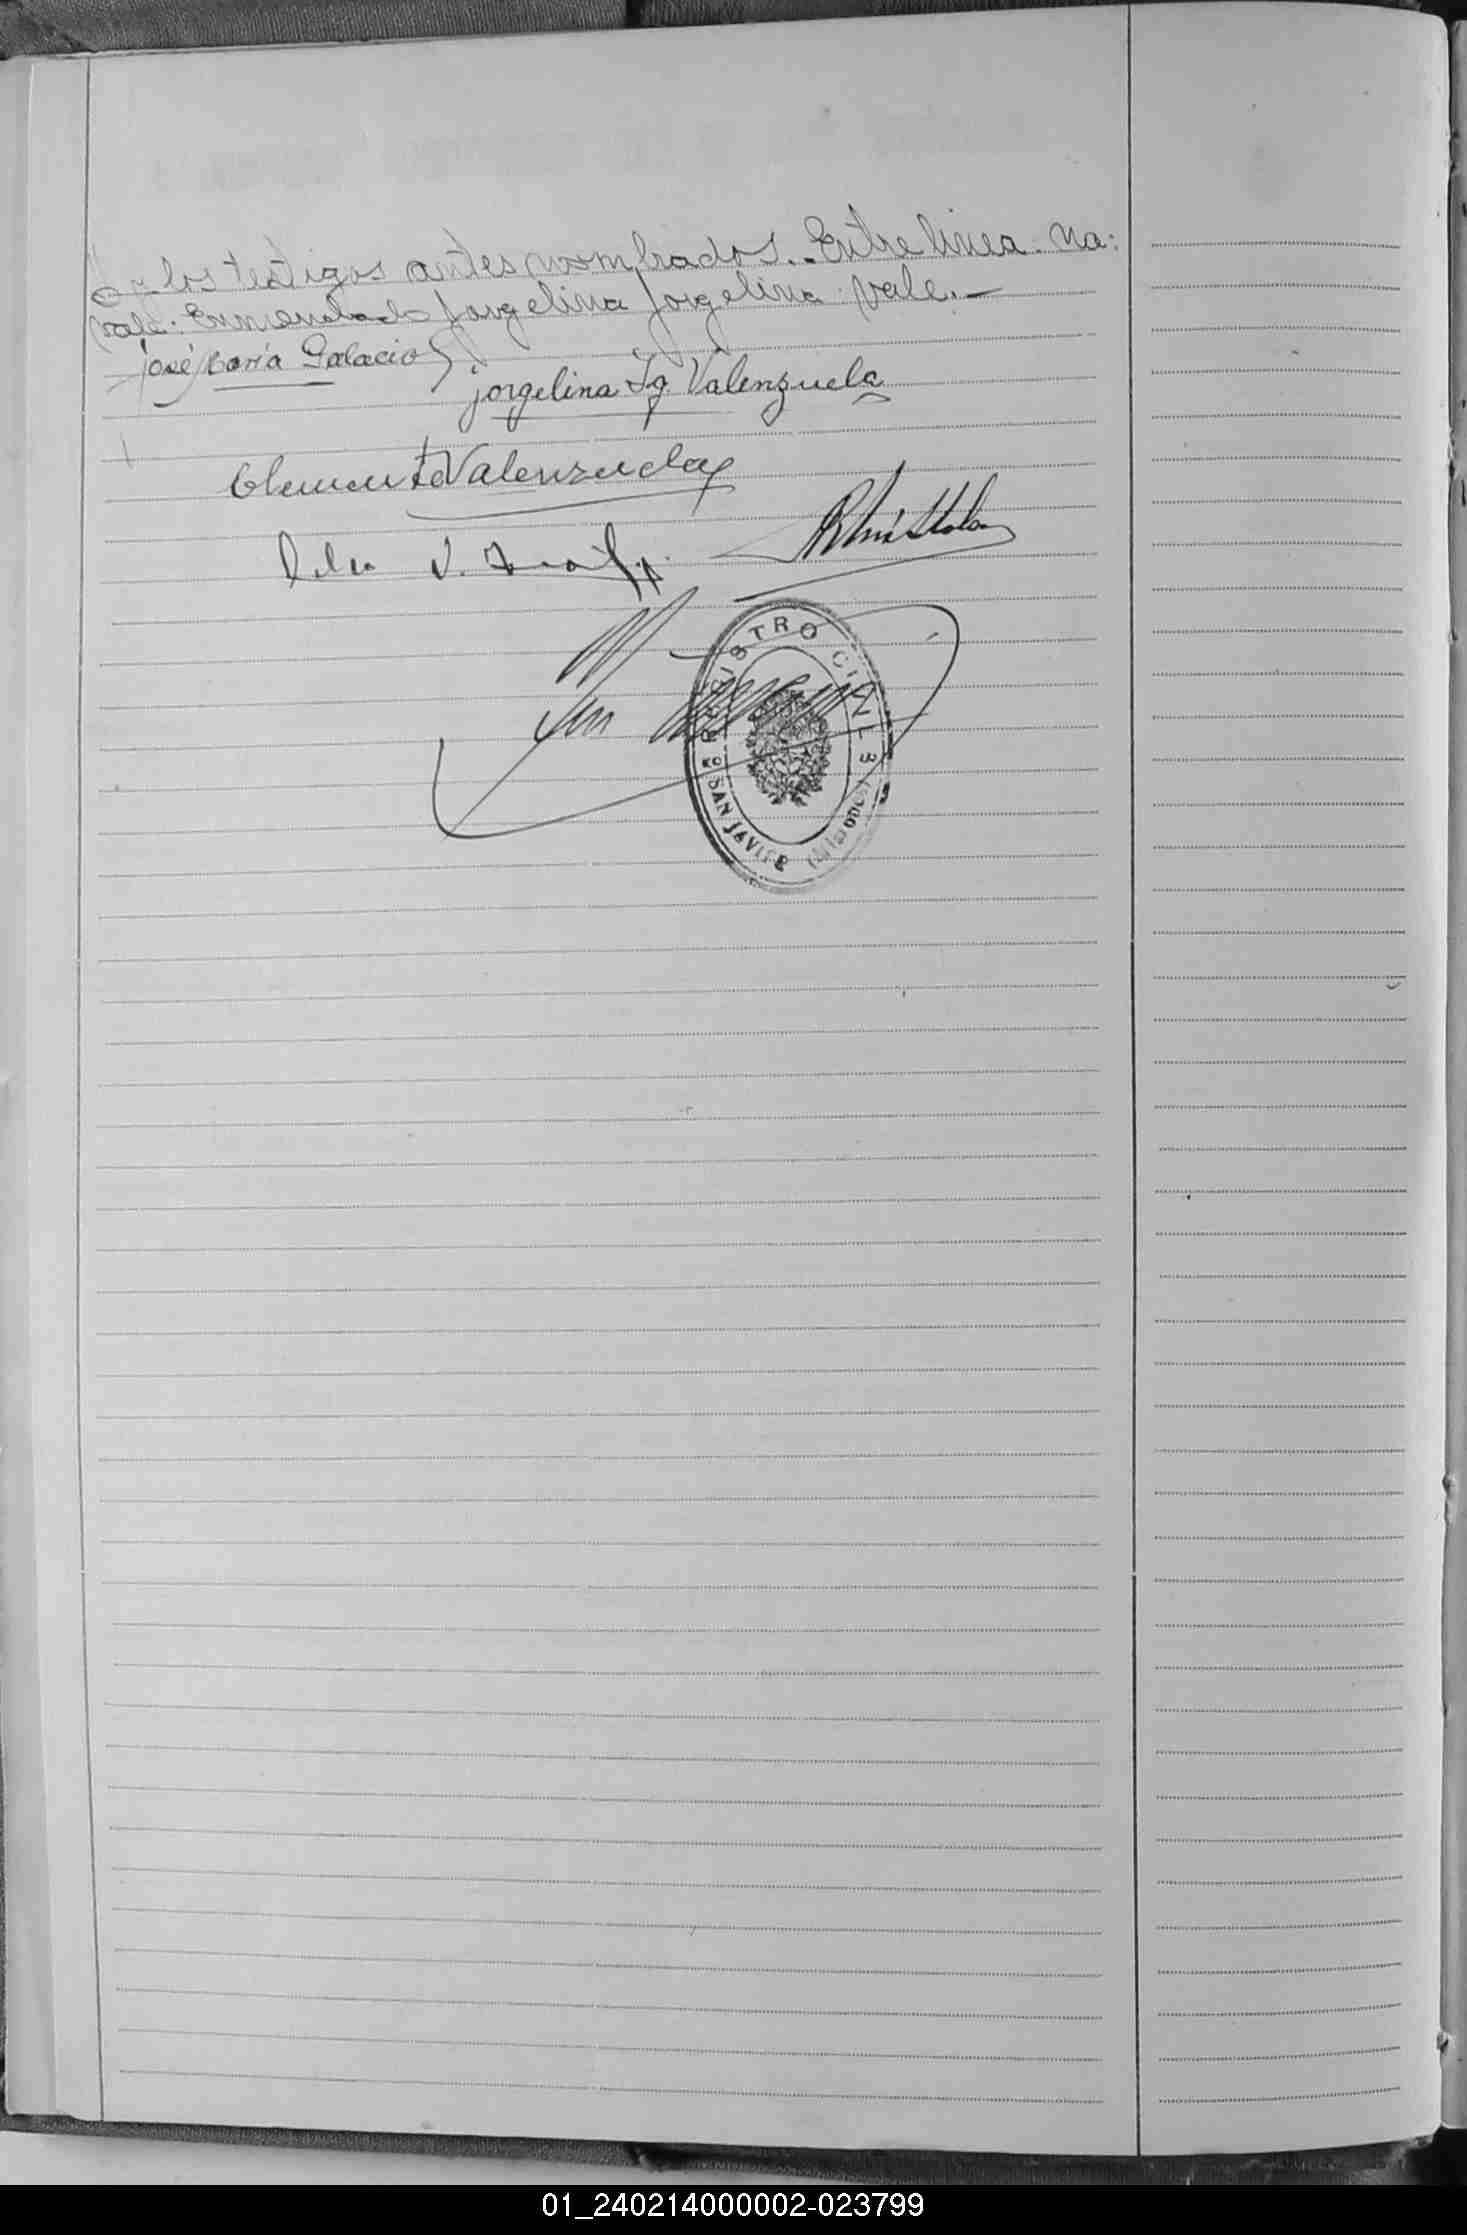 y los testigos antes nombrados.. Entre linea. na:
vale: Enmendado Jorgelina Jorgelina: vale.—
José María Palacio
jorgelina Ig. Valenzuela
Clemente Valenzuela
REGISTRO CIVIL
SAN JAVIER (Misiones)
01_240214000002-023799